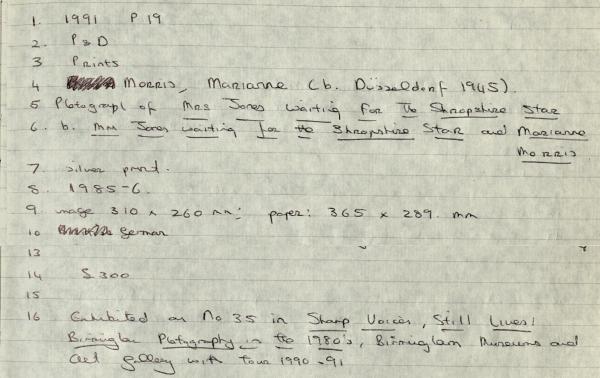 1. 1991 P 19
2. P & D
3 Prints
4 MORRIS, MARIANNE (b. Düsseldorf 1945).
5 Photograph of Mrs Jones waiting for the Shropshire Star
6. b. Mrs Jones waiting for the Shropshire Star and Marianne
Morris
7. silver print.
8. 1985-6.
9 image 310 x 260 mm; paper: 365 x 289. mm
10 German
13
14 S 300
15
16 Exhibited as No 35 in Sharp Voices, Still Lives:
Birmingham Photography in the 1980's, Birmingham Museums and
Art gallery with tour 1990-91